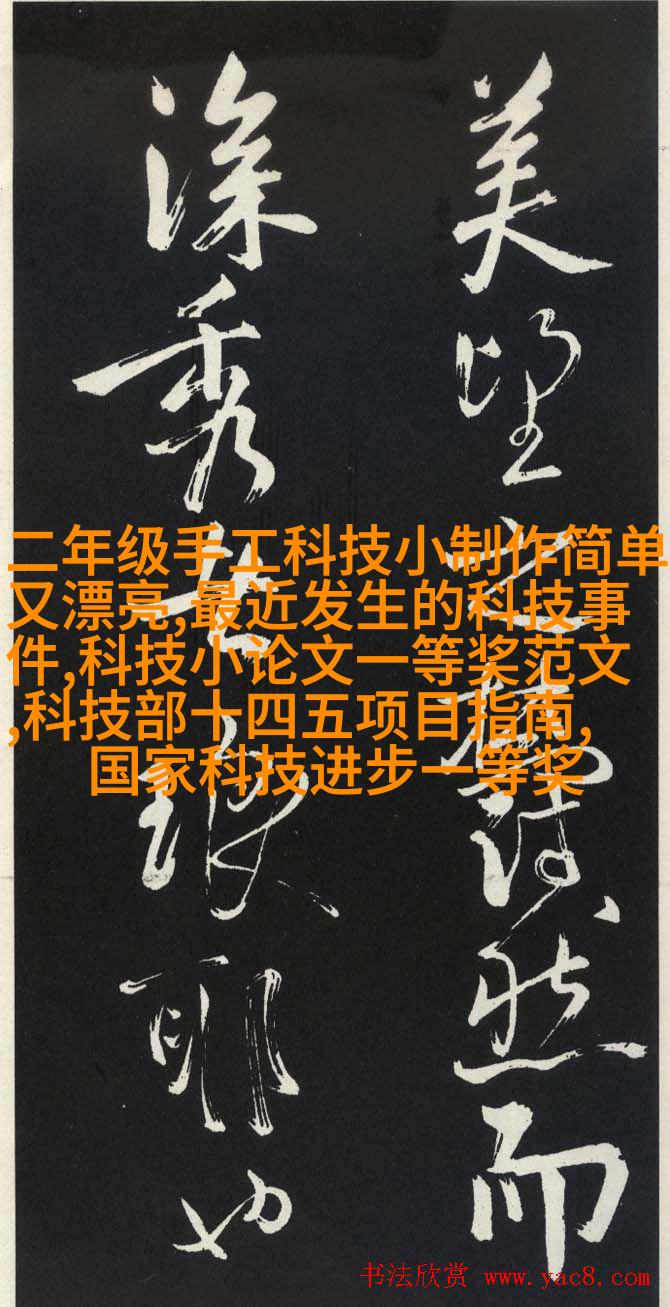 美望之蔚然而
深秀者琅耶也
二年级手工科技小制作简单
又漂亮,最近发生的科技事
件,科技小论文一等奖范文
,科技部十四五项目指南,
国家科技进步一等奖
书法欣赏 www.yac8.com